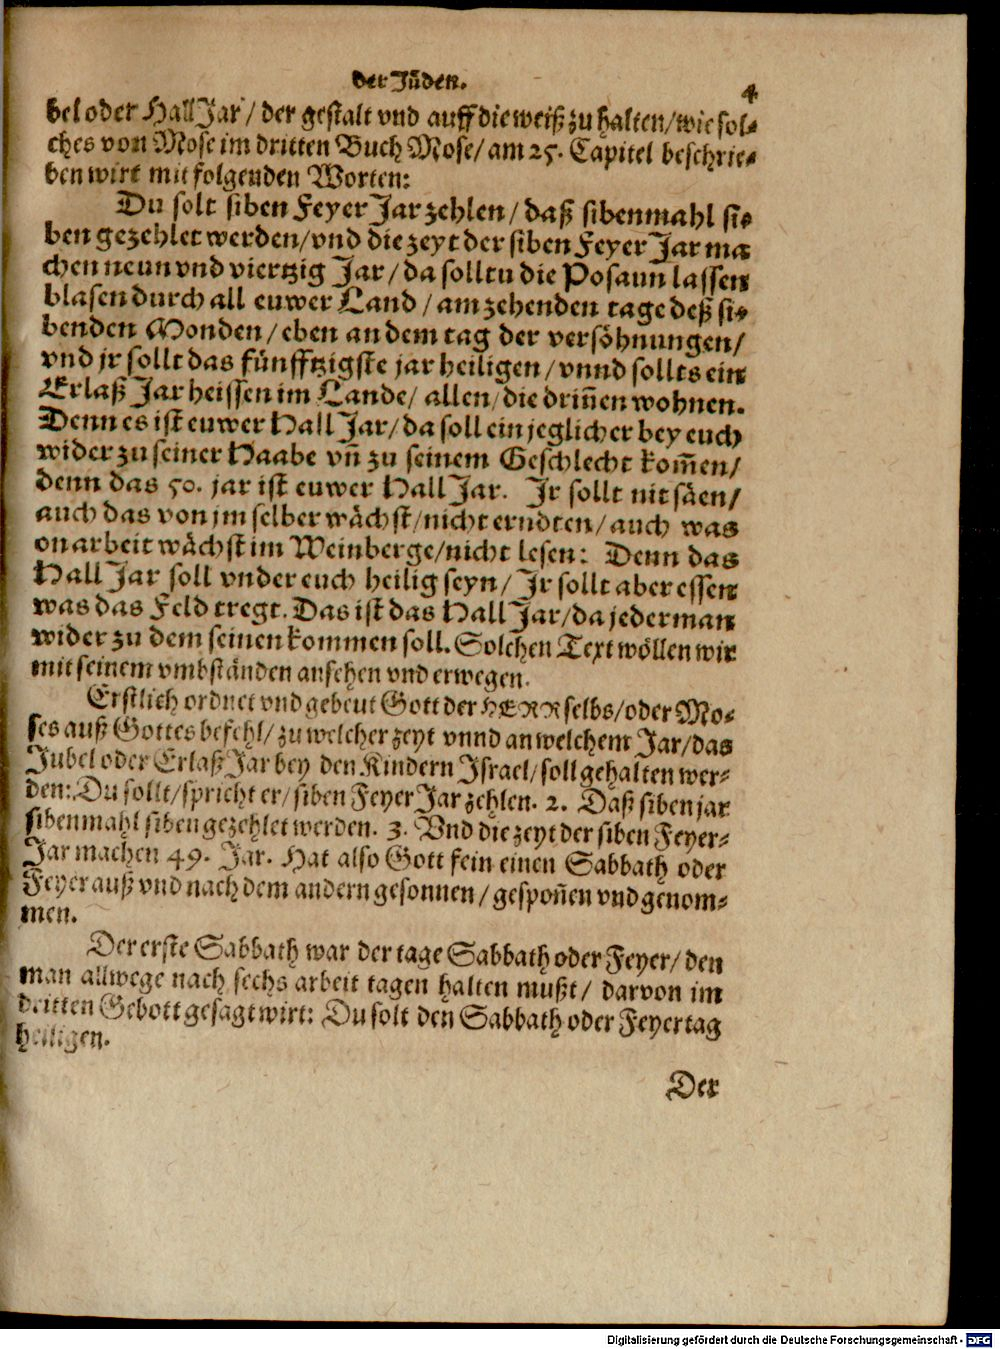 der Jüden.
4
bel oder Hall Jar / der gestalt vnd auff die weiß zu halten / wie sol-
ches von Mose im dritten Buch Mose / am 25. Capitel beschrie-
ben wirt mit folgenden Worten:
Du solt siben Feyer Jar zehlen / daß sibenmahl si-
ben gezehlet werden / vnd die zeyt der siben Feyer Jar ma
chen neun vnd viertzig Jar / da soltu die Posaun lassen
blasen durch all euwer Land / am zehenden tage deß si-
benden Monden / eben an dem tag der versöhnungen /
vnd jr sollt das fünfftzigste jar heiligen / vnnd sollts ein
Erlaß Jar heissen im Lande / allen / die driñen wohnen.
Denn es ist euwer Hall Jar / da soll ein jeglicher bey euch
wider zu seiner Haabe vñ zu seinem Geschlecht kom̃en /
denn das 50. jar ist euwer Hall Jar. Jr sollt nit säen /
auch das von jm selber wächst / nicht erndten / auch was
on arbeit wächst im Weinberge / nicht lesen: Denn das
Hall Jar soll vnder euch heilig seyn / Jr sollt aber essen
was das Feld tregt. Das ist das Hall Jar / da jederman
wider zu dem seinen kommen soll. Solchen Text wöllen wir
mit seinem vmbständen ansehen vnd erwegen.
Erstlich ordnet vnd gebeut Gott der HERR selbs / oder Mo-
ses auß Gottes befehl / zu welcher zeyt vnnd an welchem Jar / das
Jubel oder Erlaß Jar bey den Kindern Israel / soll gehalten wer-
den: Du sollt / spricht er / siben Feyer Jar zehlen. 2. Daß siben jar
sibenmahl siben gezehlet werden. 3. Vnd die zeyt der siben Feyer-
Jar machen 49. Jar. Hat also Gott fein einen Sabbath oder
Feyer auß vnd nach dem andern gesonnen / gespoñen vnd genom-
men.
Der erste Sabbath war der tage Sabbath oder Feyer / den
man allwege nach sechs arbeit tagen halten mußt / darvon im
dritten Gebott gesagt wirt: Du solt den Sabbath oder Feyertag
heiligen.
Der
Digitalisierung gefördert durch die Deutsche Forschungsgemeinschaft - DFG